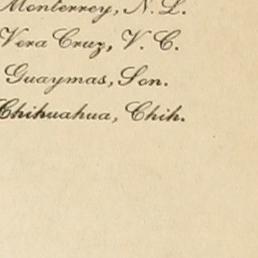 Monterrey, N. L.
Vera Cruz, V. C.
Guaymas, Son.
Chihuahua, Chih.